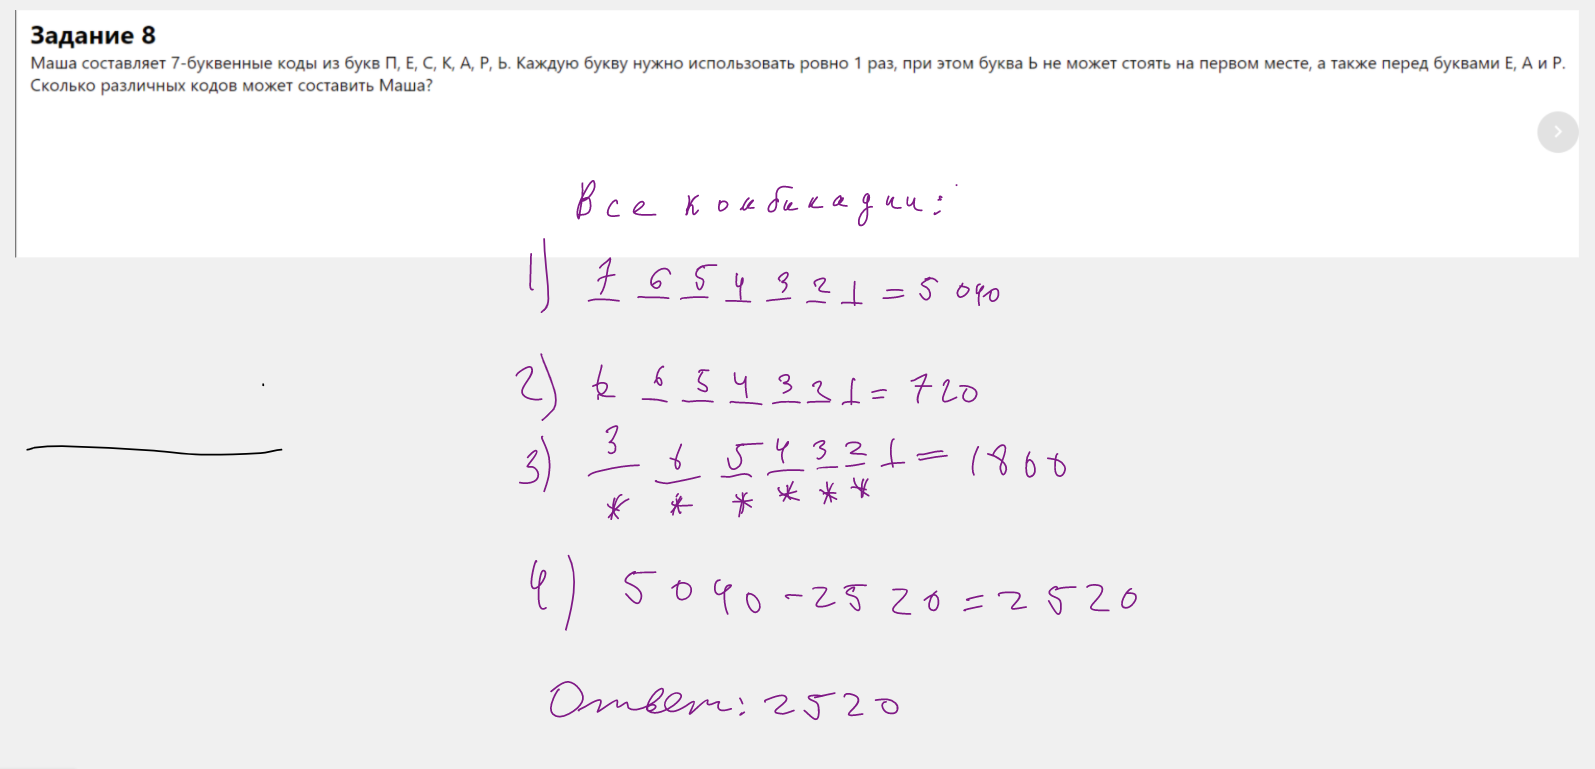 Задание 8
Маша составляет 7-буквенные коды из букв П, Е, С, К, А, Р, Ь. Каждую букву нужно использовать ровно 1 раз, при этом буква Ь не может стоять на первом месте, а также перед буквами Е, А и Р.
Сколько различных кодов может составить Маша?
Все комбинации:
1) 7 6 5 4 3 2 1 = 5 040
2) Ь 6 5 4 3 2 1 = 720
3) 3 6 5 4 3 2 1 = 1800
* * * * * *
4) 5040 - 2520 = 2520
Ответ: 2520